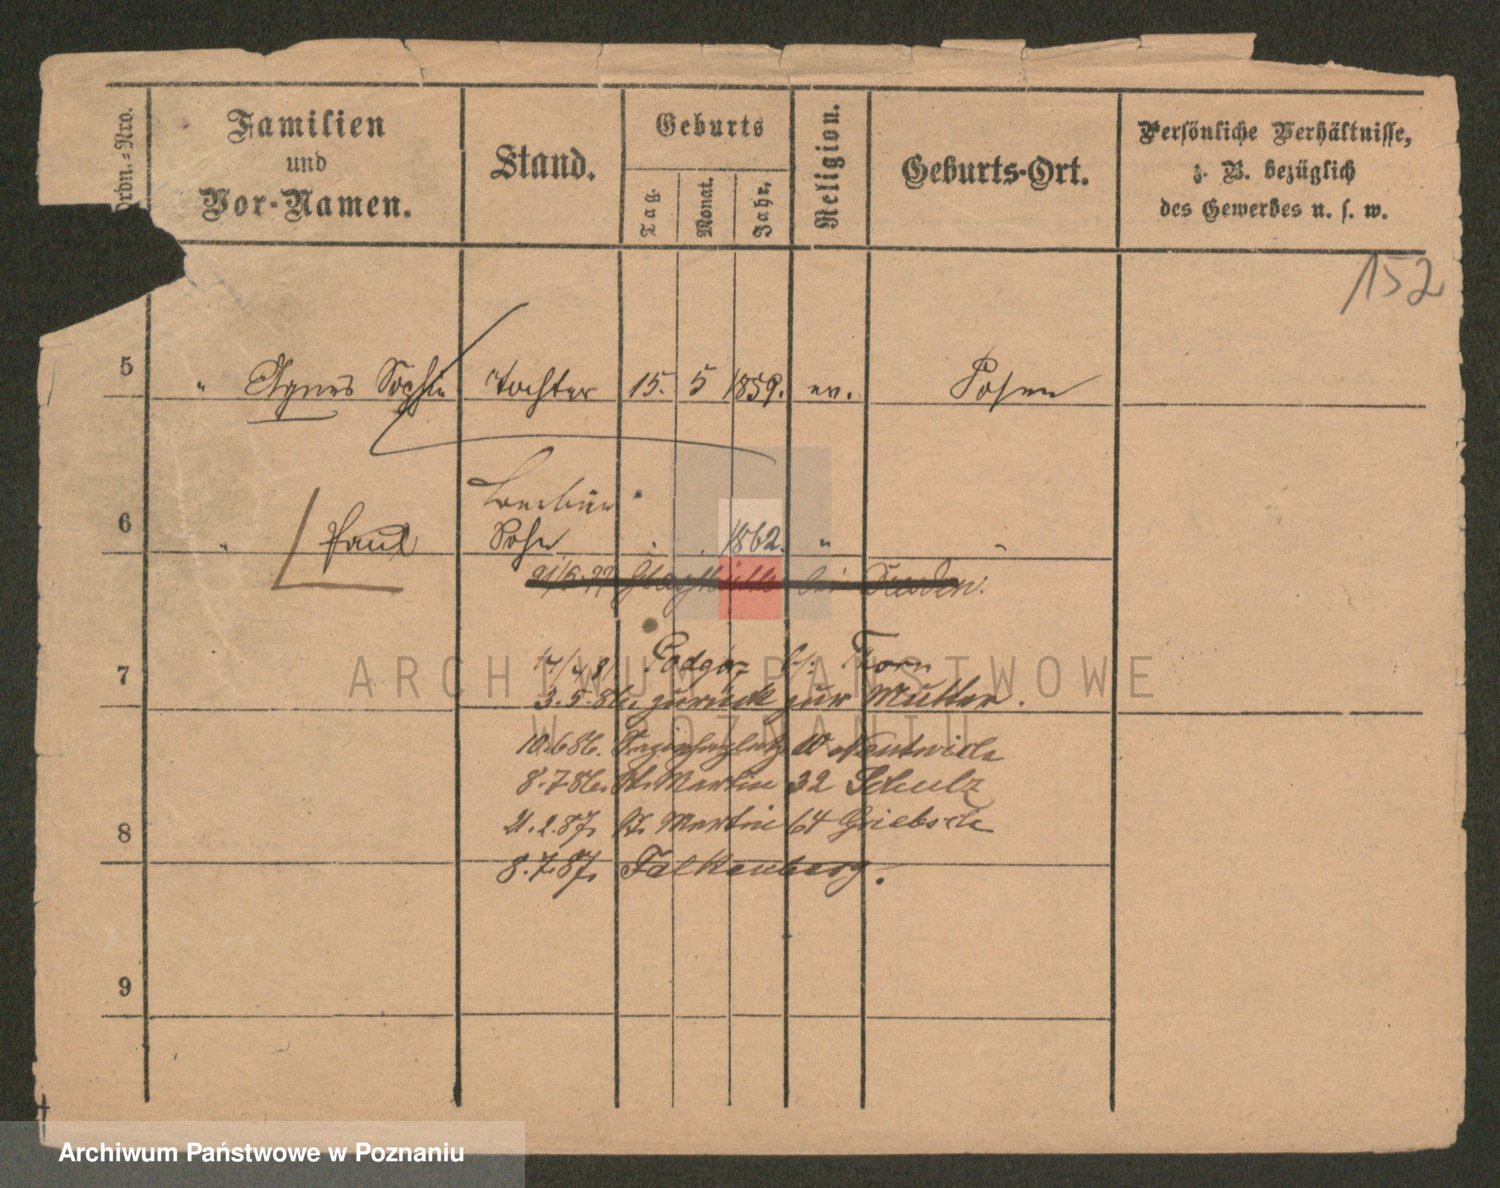 Ordn.=Nro.
Familien
und
Vor-Namen.
Stand.
Geburts
Tag.
Monat.
Jahr.
Religion.
Geburts-Ort.
Persönliche Verhältnisse,
z. B. bezüglich
des Gewerbes u. s. w.
152
5 " Agnes Sophie Tochter 15. 5 1859. ev. Posen
6 " Paul Sohn . . 1862. " "
bei Dresden.
7
Podgorz b/. Torn
3.5.86. zurück zur Mutter.
10.6.86. 10 Nentwich
8.7.86. St. Martin 32 Schulz
8
21.2.87. St. Martin 64 Griebsch
8.7.87. Falkenberg.
9
ARCHIWUM PAŃSTWOWE
W POZNANIU
Archiwum Państwowe w Poznaniu